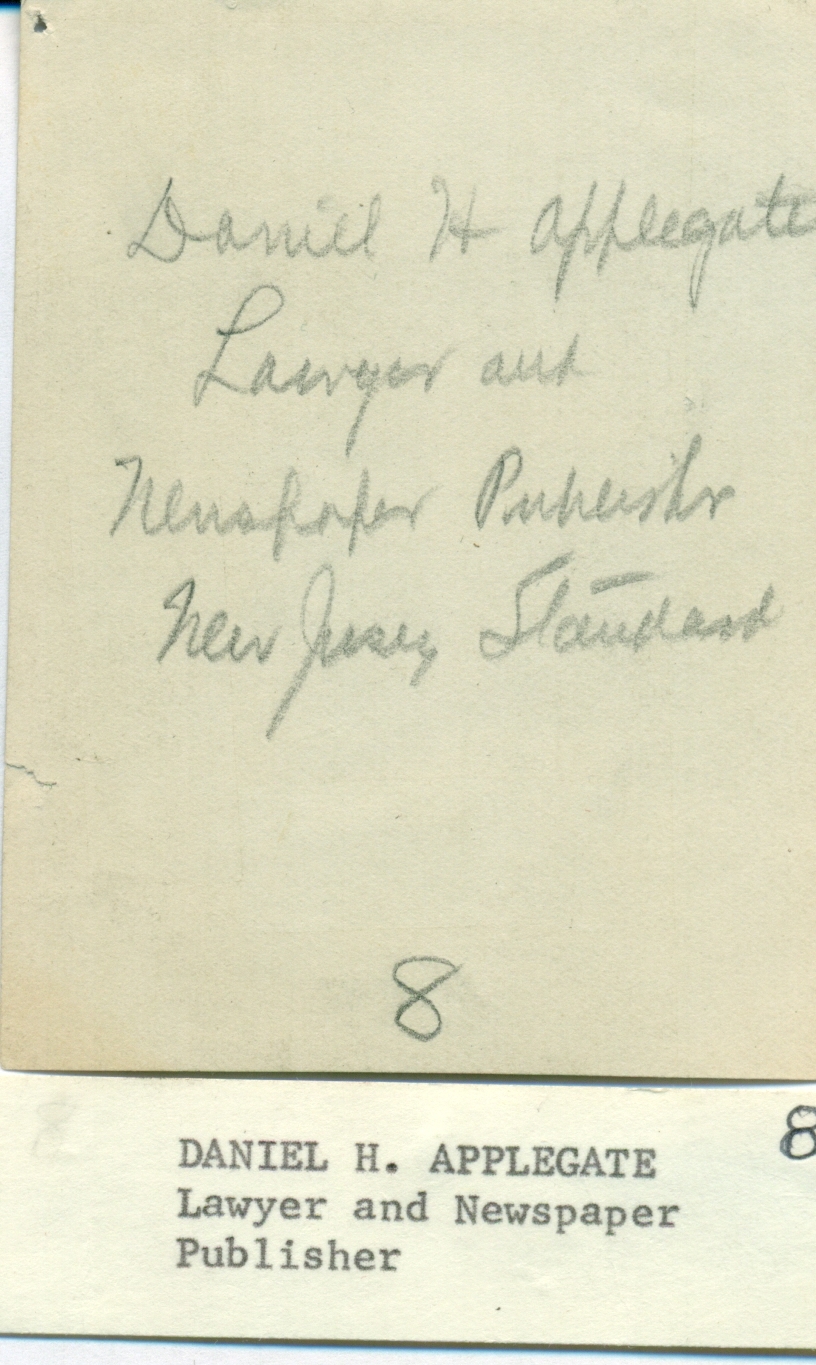 Daniel H Applegate
Lawyer and
Newspaper Publisher
New Jersey Standard
8
8
DANIEL H. APPLEGATE
Lawyer and Newspaper
Publisher